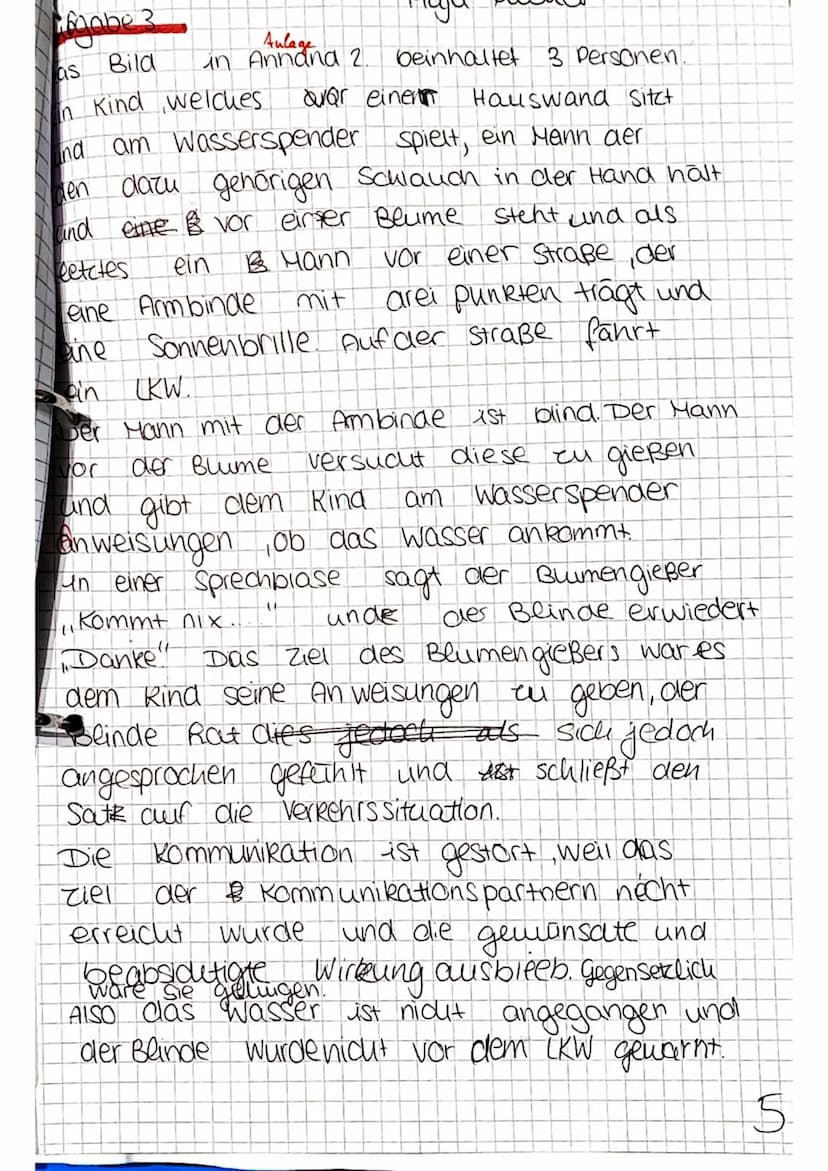 fgabe 3
Anlage
as Bild in Annana 2. beinhaltet 3 Personen.
n Kind, welches vor einem Hauswand sitzt
nd am Wasserspender spielt, ein Mann der
den dazu gehörigen Schlauch in der Hand hält
und eine vor einer Blume steht und als
letztes ein Mann vor einer Straße, der
eine Armbinde mit drei Punkten trägt und
eine Sonnenbrille. Auf der Straße fährt
ein LKW.
Der Mann mit der Ambinde ist blind. Der Mann
vor der Blume versucht diese zu gießen
und gibt dem Kind am Wasserspender
Anweisungen, ob das Wasser ankommt.
In einer Sprechblase sagt der Blumengießer
„Kommt nix..." und der Blinde erwiedert
„Danke!" Das Ziel des Blumengießers war es
dem Kind seine Anweisungen zu geben, der
Blinde hat dies jedoch als sich jedoch
angesprochen gefühlt und schließt den
Satz auf die Verkehrssituation.
Die Kommunikation ist gestört, weil das
Ziel der Kommunikationspartnern nicht
erreicht wurde und die gewünschte und
beabsichtigte Wirkung ausblieb. Gegensetzlich
wäre sie gelungen.
Also das Wasser ist nicht angegangen und
der Blinde wurde nicht vor dem LKW gewarnt.
5